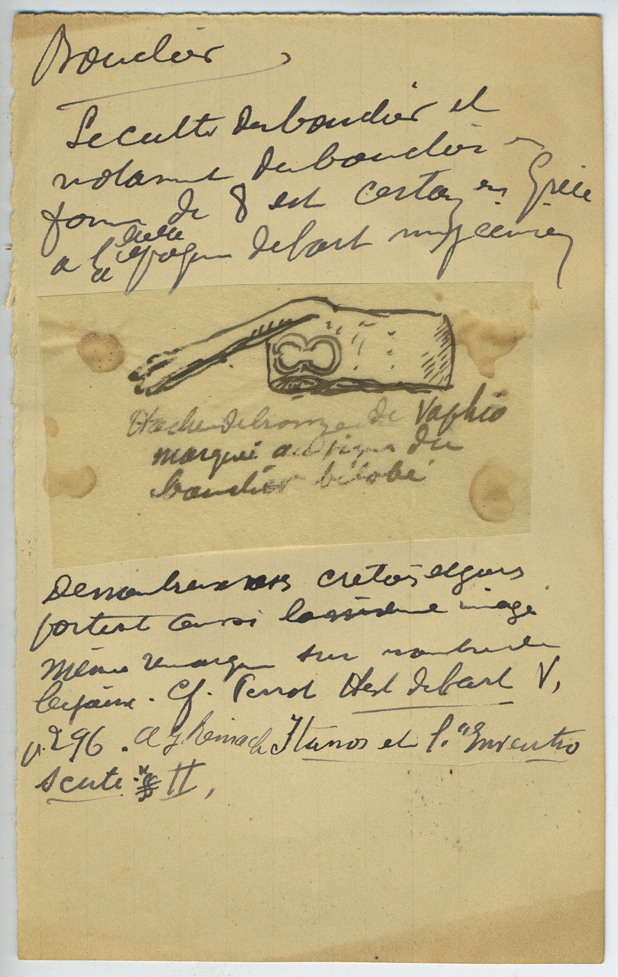 Bouclier
Le culte du bouclier et
notamt du bouclier en
forme de 8 est certain en Grèce
à l'époque de l'art mycénien
Hache de bronze de Vaphio
marquée au signe du
bouclier bilobé
De nombreuses crétois
portent aussi la même image
Même remarque sur nombre de
Cf. Perrot Hist de l'art V,
p. 296. A J Reinach Itanos et l'"Inventio
scuti" II,